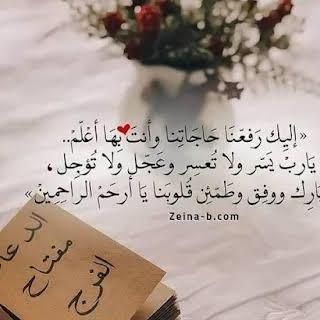 «إليك رَفعْنَا حَاجَاتِنا وأنتَ بِهَا أعْلَمْ..
يَاربْ يَسّر ولا تُعسِر وعَجّل ولا تُؤجِل،
بَارِك ووفق وطَمّئِن قُلوبَنا يَا أرحَمْ الراحِمِينْ»
Zeina-b.com
الدعاء
مفتاح
الفرج